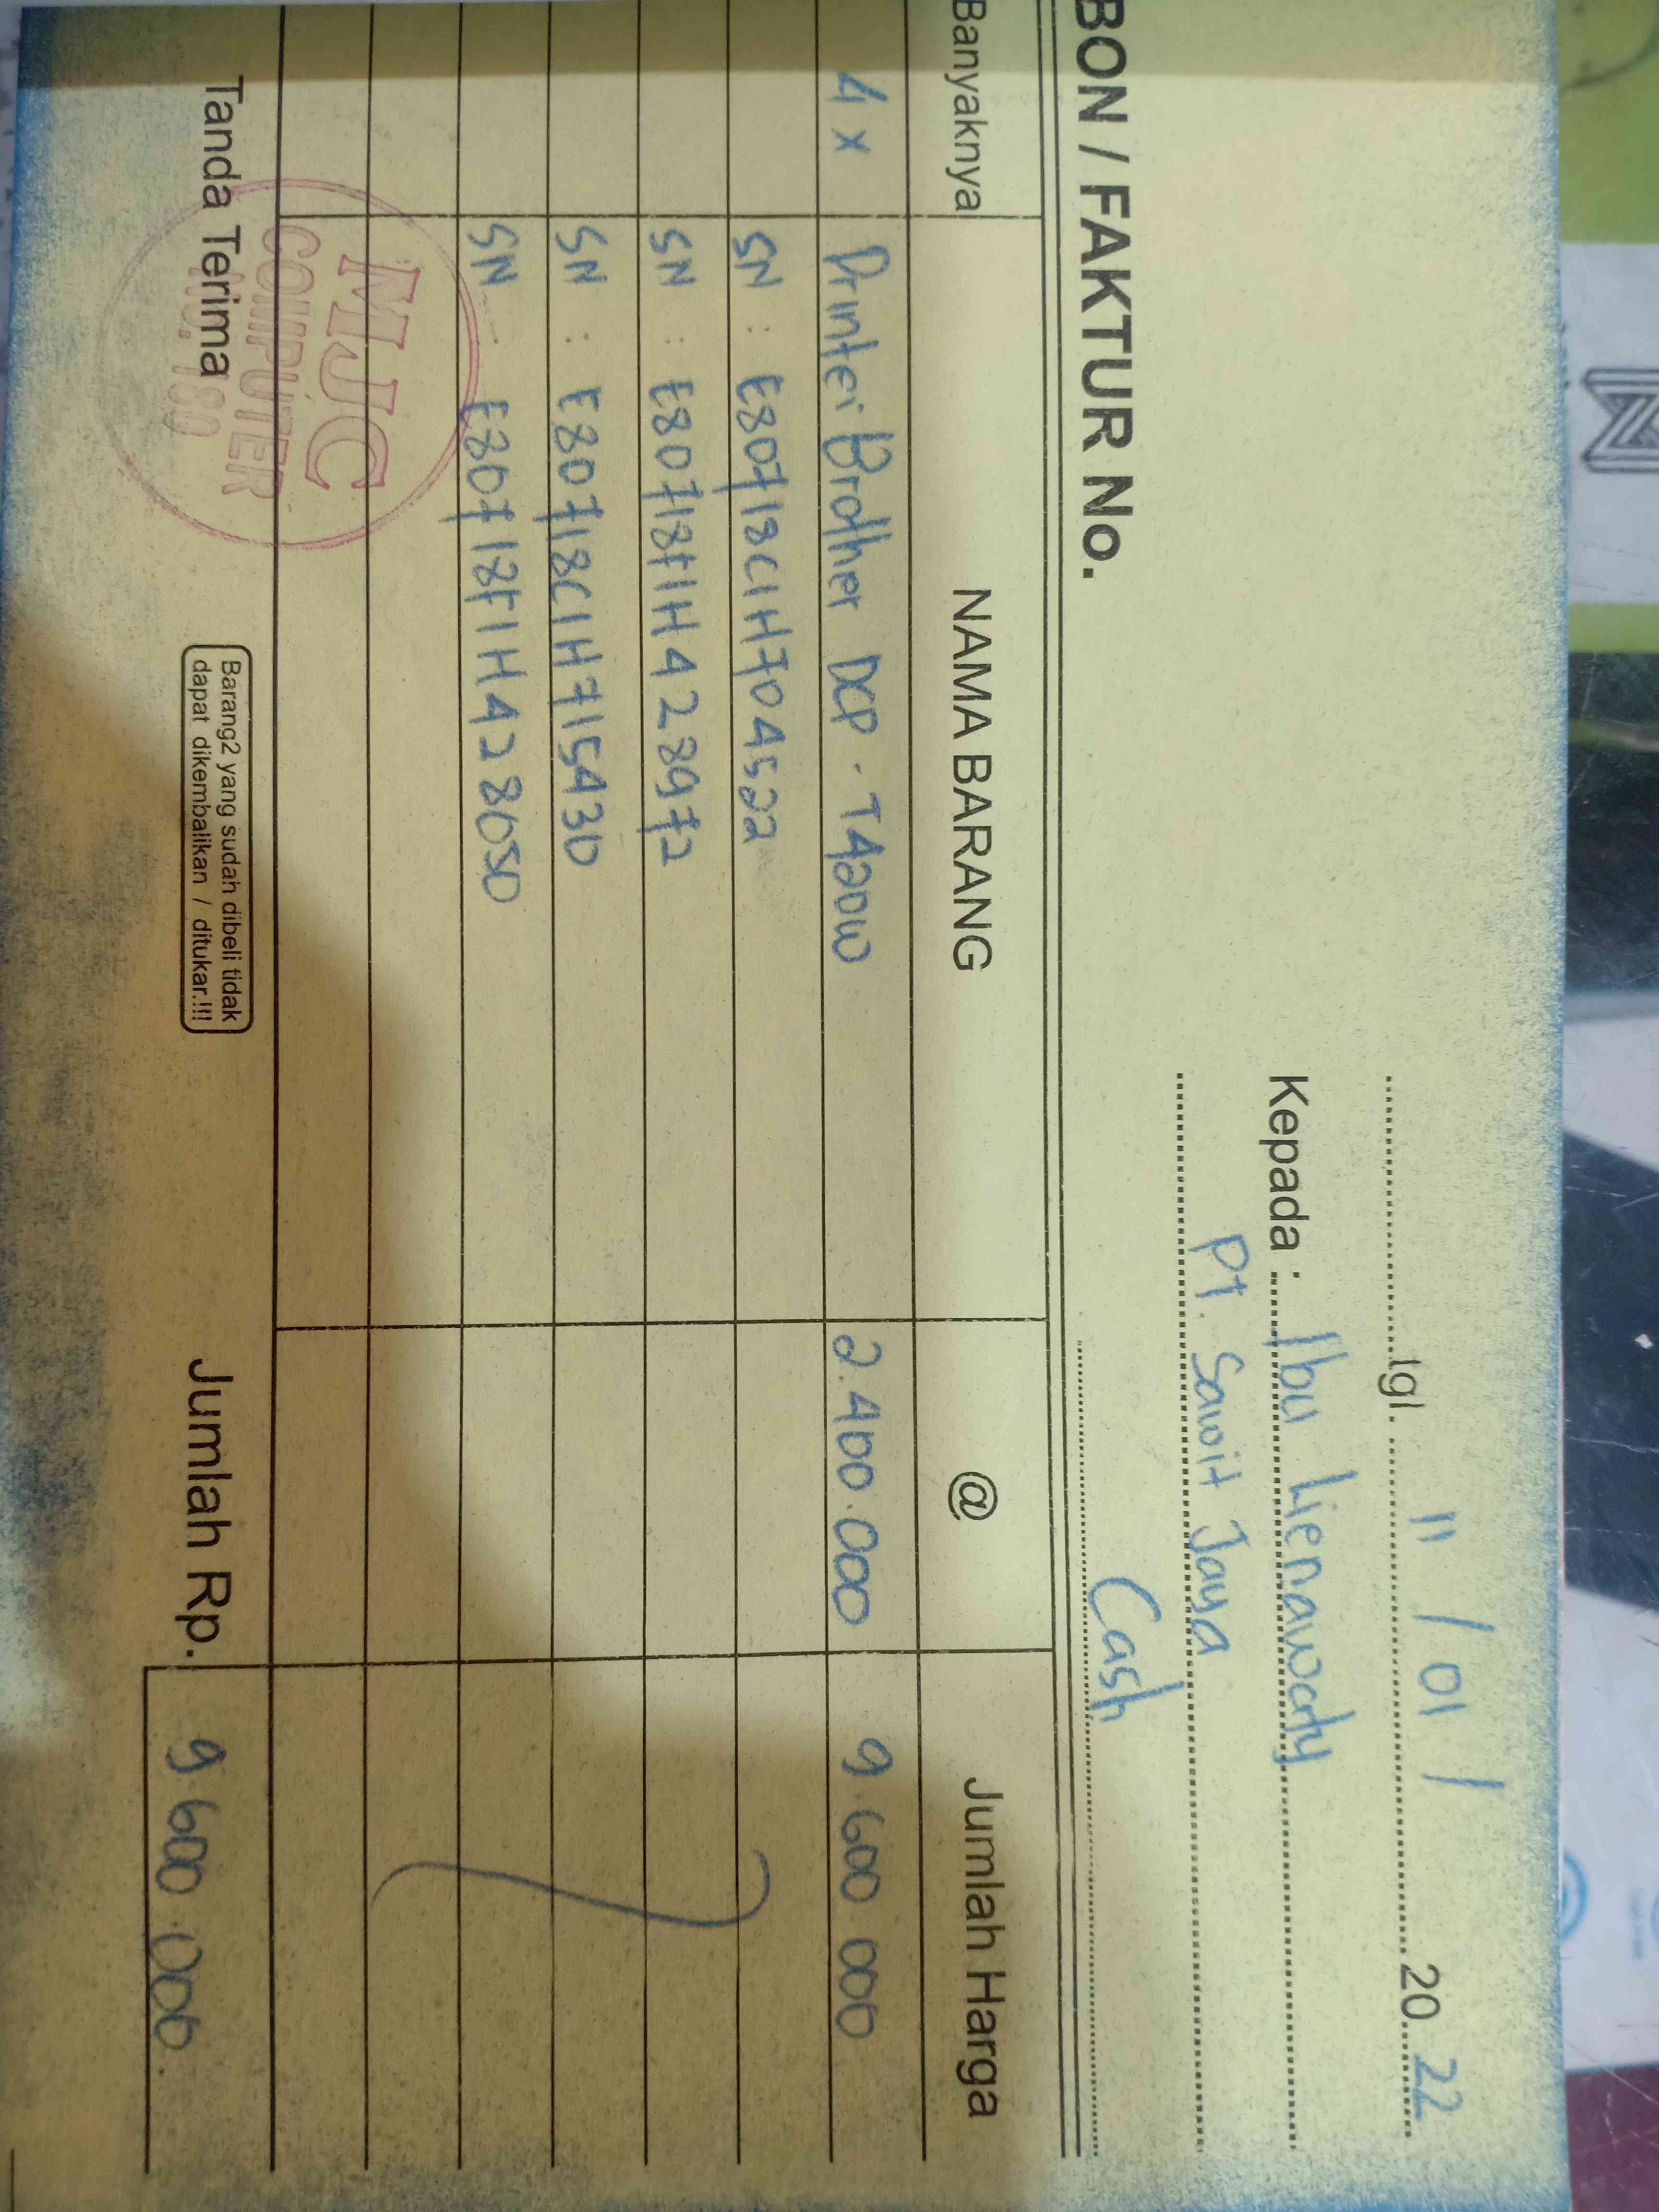 tgl. 11 / 01 / 2022
Kepada : Ibu Lienawaty
Pt. Sawit Jaya
BON / FAKTUR No.
Cash
Banyaknya NAMA BARANG @ Jumlah Harga
4 x Printer Brother DCP - T420W 2.400.000 9.600 000
SN : E80718C1H704522
SN : E80718F1H428972
SN : E80718C1H715430
SN : E80718F1H428050
MJC
COMPUTER
Tanda Terima
Barang2 yang sudah dibeli tidak
dapat dikembalikan / ditukar.!!!
Jumlah Rp. 9.600.000.